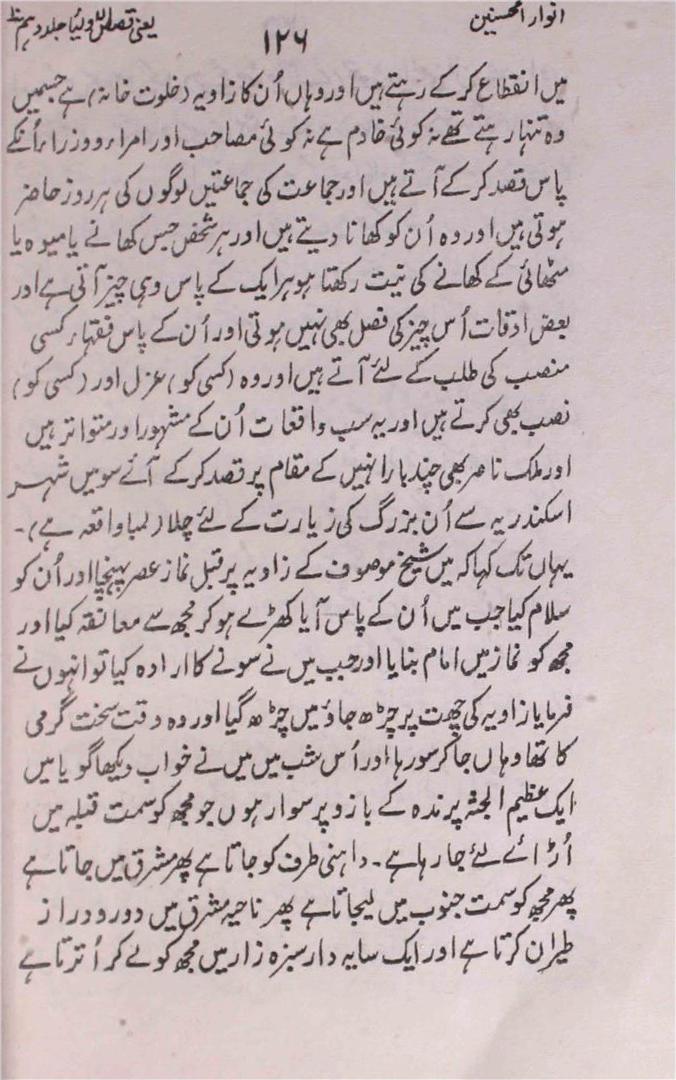 انوار المحسنین
۱۲۶
یعنی قصص الاولیا جلد دہم
میں انقطاع کرکے رہتے ہیں اور وہاں اُن کا زاویہ (خلوت خانہ) ہے جسمیں
وہ تنہا رہتے تھے نہ کوئی خادم ہے نہ کوئی مصاحب اور امراء و وزراء اُنکے
پاس قصد کرکے آتے ہیں اور جماعت کی جماعتیں لوگوں کی ہر روز حاضر
ہوتی ہیں اور وہ اُن کو کھانا دیتے ہیں اور ہر شخص جس کھانے یا میوہ یا
مٹھائی کے کھانے کی نیت رکھتا ہو ہر ایک کے پاس وہی چیز آتی ہے اور
بعض اوقات اُس چیز کی فصل بھی نہیں ہوتی اور اُن کے پاس فقہاء کسی
منصب کی طلب کے لئے آتے ہیں اور وہ (کسی کو) عزل اور (کسی کو)
نصب بھی کرتے ہیں اور یہ سب واقعات اُن کے مشہور اور متواتر ہیں
اور ملک ناصر بھی چند بار انہیں کے مقام پر قصد کرکے آئے سو میں شہر
اسکندریہ سے اُن بزرگ کی زیارت کے لئے چلا (لمبا واقعہ ہے)۔
یہاں تک کہا کہ میں شیخ موصوف کے زاویہ پر قبل نماز عصر پہنچا اور اُن کو
سلام کیا جب میں اُن کے پاس آیا کھڑے ہو کر مجھ سے معانقہ کیا اور
مجھ کو نماز میں امام بنایا اور جب میں نے سونے کا ارادہ کیا تو انہوں نے
فرمایا زاویہ کی چھت پر چڑھ جاؤ میں چڑھ گیا اور وہ وقت سخت گرمی
کا تھا وہاں جا کر سو رہا اور اُس شب میں میں نے خواب دیکھا گویا میں
ایک عظیم الجثہ پرندہ کے بازو پر سوار ہوں جو مجھ کو سمت قبلہ میں
اُڑائے لئے جا رہا ہے۔ داہنی طرف کو جاتا ہے پھر مشرق میں جاتا ہے
پھر مجھ کو سمت جنوب میں لیجاتا ہے پھر ناحیہ مشرق میں دور و دراز
طیران کرتا ہے اور ایک سایہ دار سبزہ زار میں مجھ کو لے کر اُترتا ہے